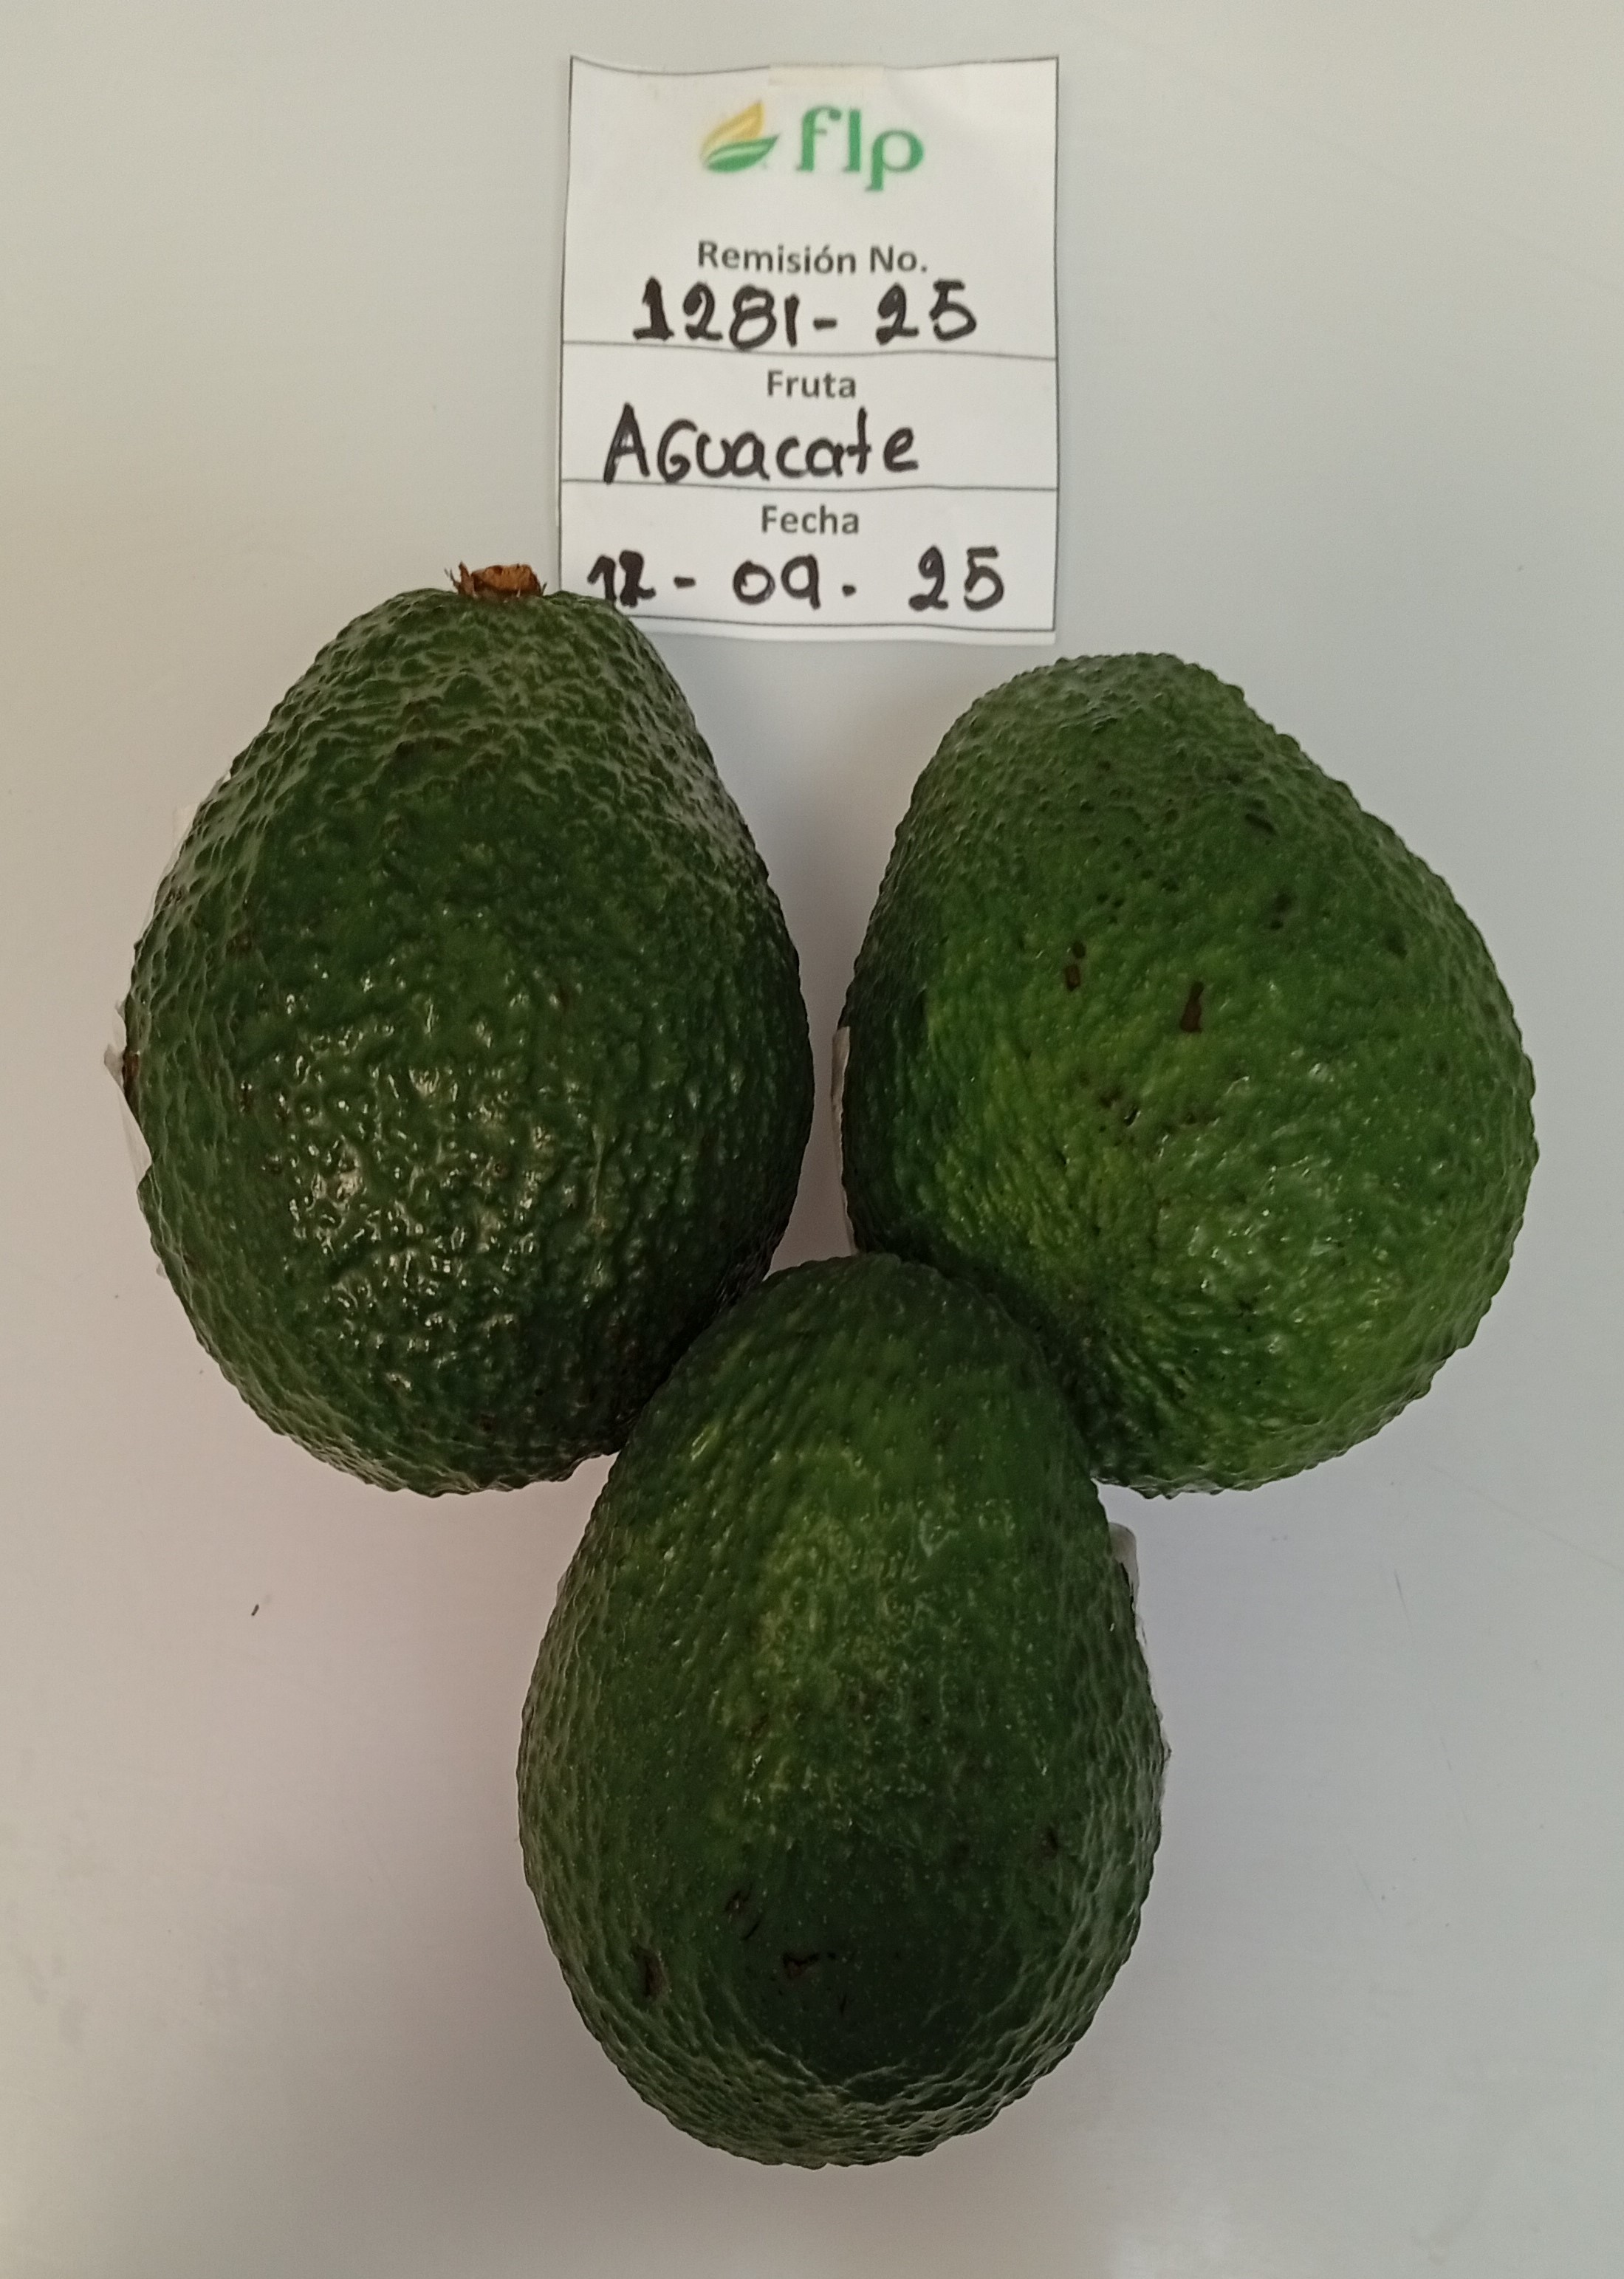 flp
Remisión No.
1281- 25
Fruta
AGuacate
Fecha
12 - 09. 25